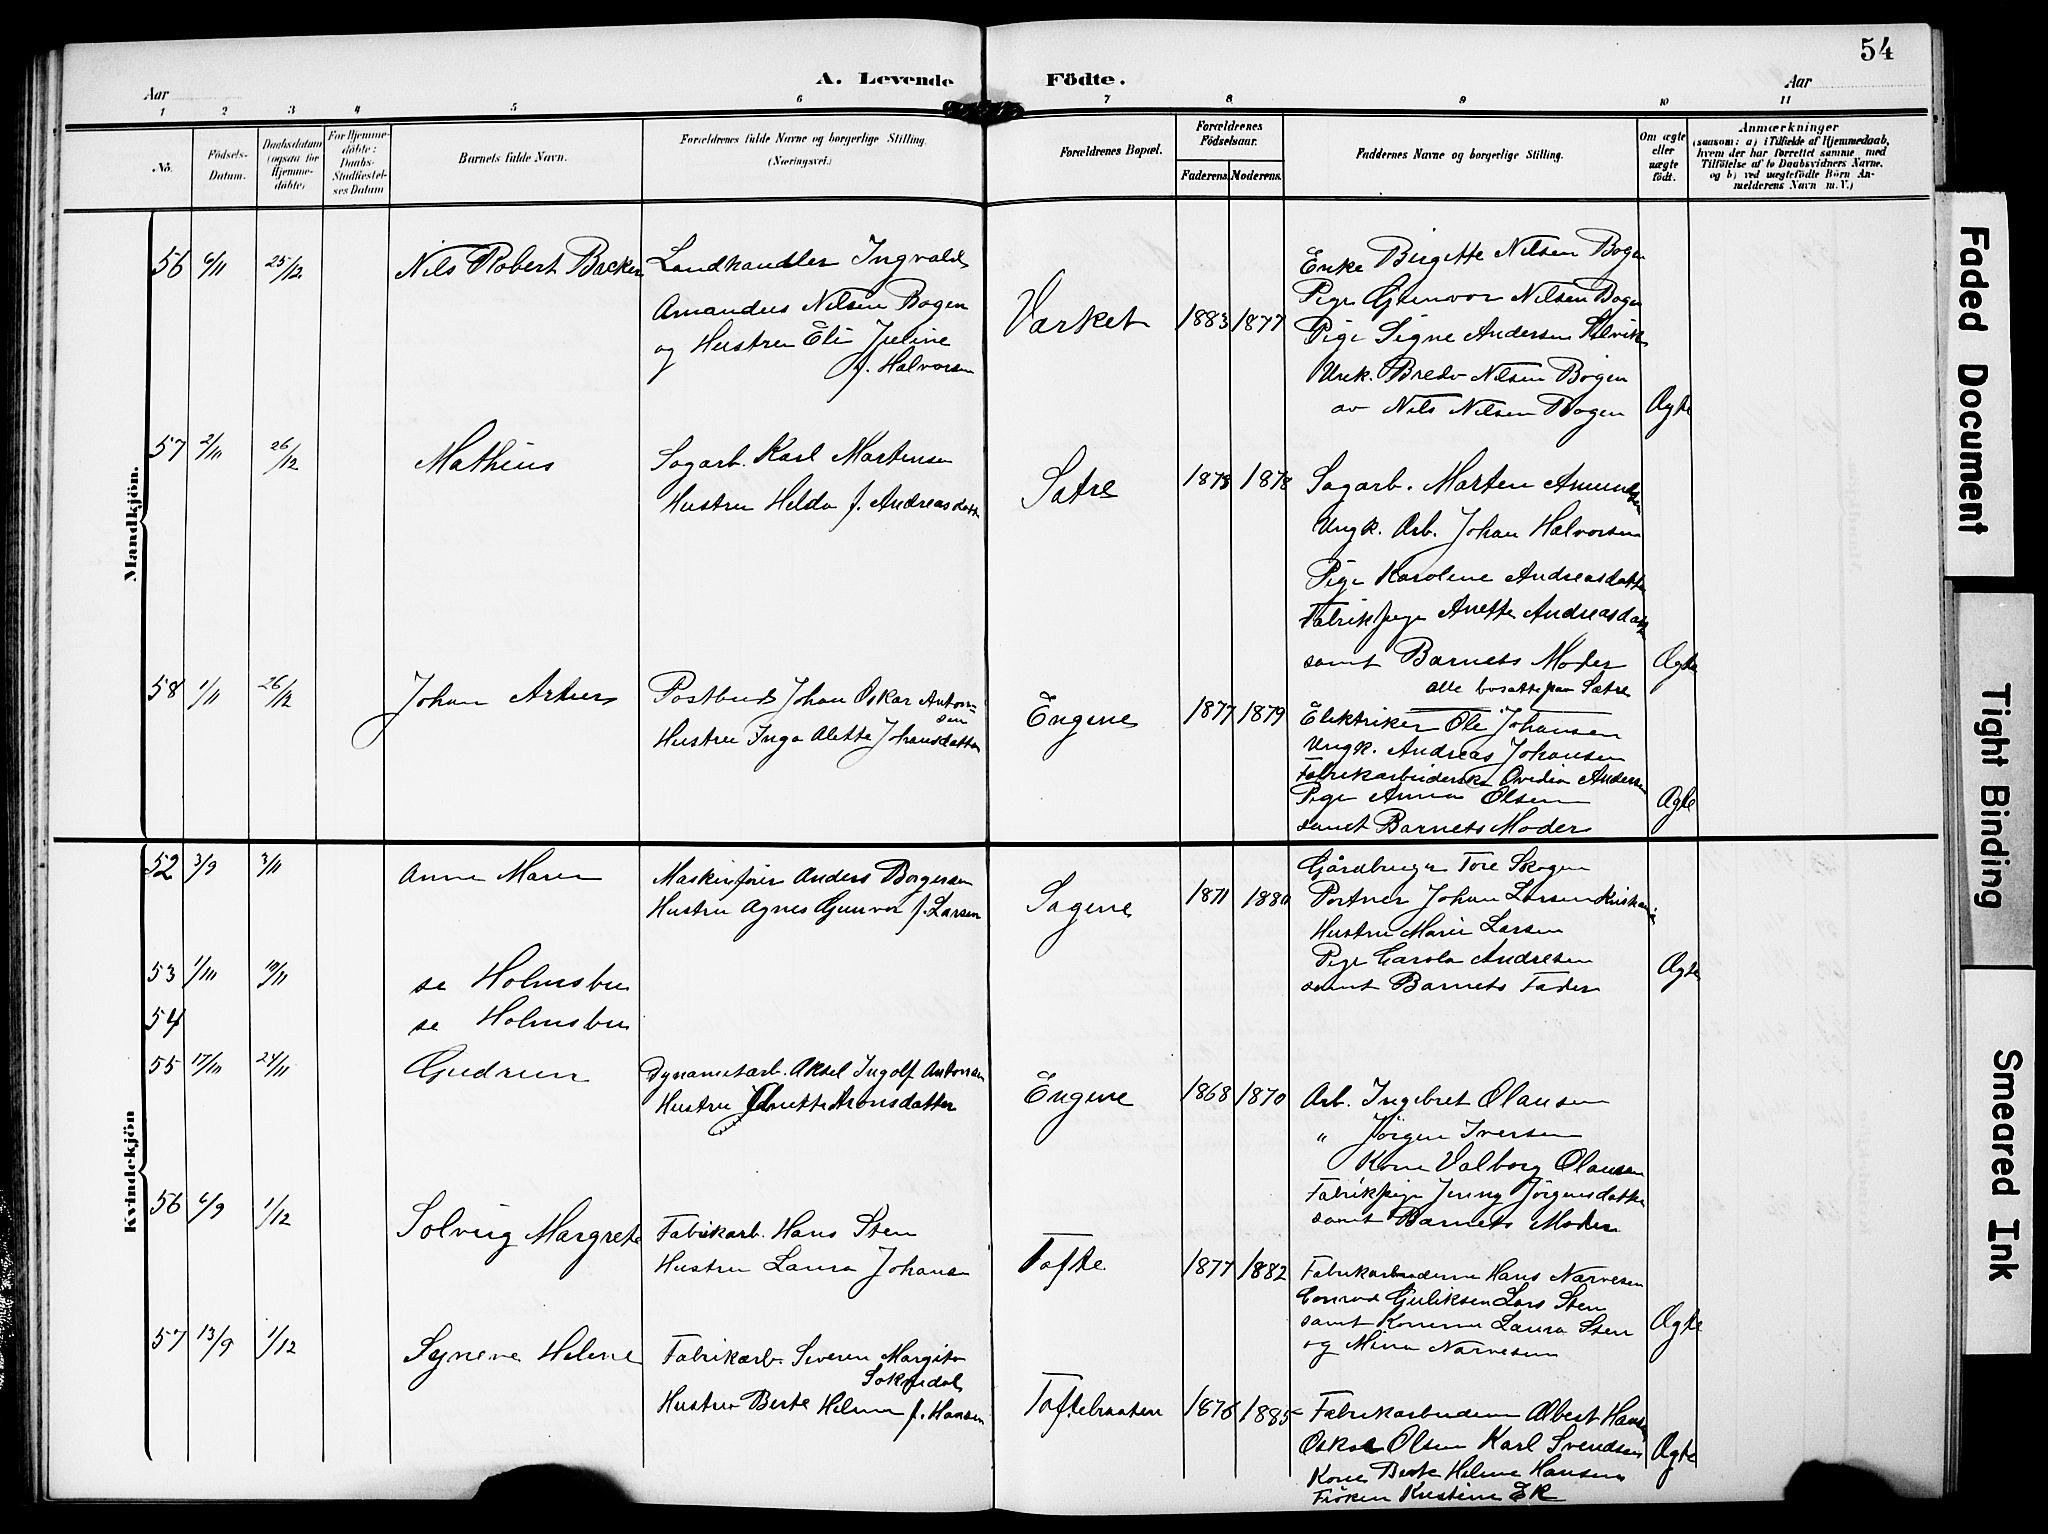 54
A. Levende Födte.
Aar Aar
1 2 3 4 5 6 7 8 9 10 11
No.
Födsels-
Datum.
Daabsdatum
(ogsaa for
Hjemme-
döbte)
For Hjemme-
döbte:
Daabs-
Stadfæstel-
ses Datum
Barnets fulde Navn.
Forældrenes fulde Navne og borgerlige Stilling.
(Næringsvei.)
Forældrenes Bopæl.
Forældrenes
Födselsaar.
Faderens. Moderens.
Faddernes Navne og borgerlige Stilling.
Om ægte
eller
uægte
födt.
Anmærkninger
(saasom: a) i Tilfælde af Hjemmedaab,
hvem der har forrettet samme med
Tilföielse af to Daabsvidners Navne.
og b) ved uægtefödte Börn An-
melderens Navn m. V.)
Mandkjön.
56 6/11 25/12 Nils Robert Backer
Landhandler Ingvald
Amandus Nilsen Bogen
og Hustru Eli Juline
f. Halvorsen
Varket 1883 1877
Enke Birgitte Nilsen Bogen
Pige Gunvor Nilsen Bogen
Pige Signe Andersen Selvik
Unk. Bredo Nilsen Bogen
av Nils Nilsen Bogen Ægte
57 2/11 26/12 Mathius
Sagarb. Karl Martensen
Hustru Helda f. Andreasdatter
Satre 1873 1878
Sagarb. Marten Amundsen
Ungk. Arb. Johan Halvorsen
Pige Karoline Andreasdatter
Fabrikpige Anette Andreasdatter
samt Barnets Moder Ægte
alle bosatte paa Sætre
58 1/11 26/12 Johan Arturs
Postbud Johan Oskar Anton-
sen
Hustru Inga Alette Johansdatter
Engene 1877 1879
Elektriker Ole Johansen
Ungk. Andreas Johansen
Fabrikarbeiderske Ovedia Andersen
Pige Anna Olsen Ægte
samt Barnets Moder
Kvindekjön
52 3/9 3/11 Anne Maren
Maskinfører Anders Borgersen
Hustru Agnes Gunvor f. Larsen
Sagene 1871 1880
Gårdbruger Tore Skogen
Portner Johan Larsen Kristiania
Hustru Marie Larsen
Pige Carola Andresen Ægte
samt Barnets Fader
53 1/10 10/11 se Holmsbu
54 se Holmsbu
55 17/10 24/11 Gudrun
Dynamitarb. Aksel Ingolf Antonsen
Hustru Aronsdatter
Engene 1868 1870
Arb. Ingebret Olausen
" Jörgen Iversen
Kone Valborg Olausen
Fabrikpige Jenny Jörgensdatter
samt Barnets Moder
56 6/9 1/12 Solveig Margrete
Fabrikarb. Hans Sten
Hustru Laura Johansen
Tofte 1877 1882
Fabrikarbeiderne Hans Narvesen
Conrad Guliksen Lars Sten
samt Konerne Laura Sten Ægte
og Mina Narvesen
57 13/9 1/12 Syneve Helene
Fabrikarb. Severen Margito
Sokndal
Hustru Berte Helene f. Hansen
Toftebraaten 1876 1885
Fabrikarbeiderne Albert Hansen
Oskar Olsen Karl Svendsen Ægte
Kone Berte Helene Hansen
Fröken Kristine Ek
Faded Document
Tight Binding
Smeared Ink